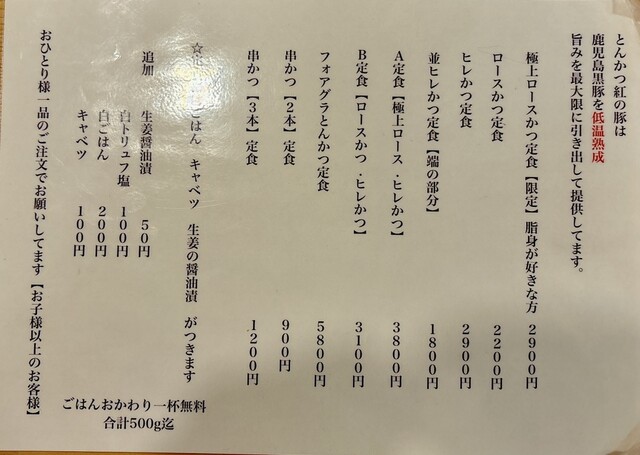 とんかつ紅の豚は
鹿児島黒豚を低温熟成
旨みを最大限に引き出して提供してます。
極上ロースかつ定食【限定】脂身が好きな方 2900円
ロースかつ定食 2200円
ヒレかつ定食 2900円
並ヒレかつ定食【端の部分】 1800円
A定食【極上ロース・ヒレかつ】 3800円
B定食【ロースかつ・ヒレかつ】 3100円
フォアグラとんかつ定食 5800円
串かつ【2本】定食 900円
串かつ【3本】定食 1200円
☆ ごはん キャベツ 生姜の醤油漬 がつきます
追加 生姜醤油漬 50円
白トリュフ塩 100円
白ごはん 200円
キャベツ 100円
おひとり様一品のご注文でお願いしてます【お子様以上のお客様】
ごはんおかわり一杯無料
合計500g迄